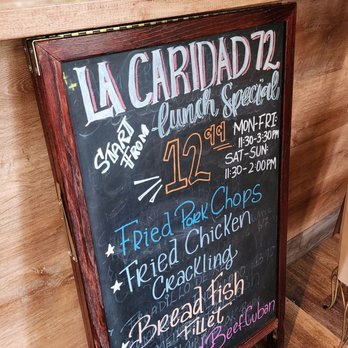 LA CARIDAD 72
lunch Special
START FROM
12.99
MON-FRI:
11:30-3:30PM
SAT-SUN:
11:30-2:00PM
Fried Pork Chops
Fried Chicken
Crackling
Bread Fish
fillet
Beef Cuban